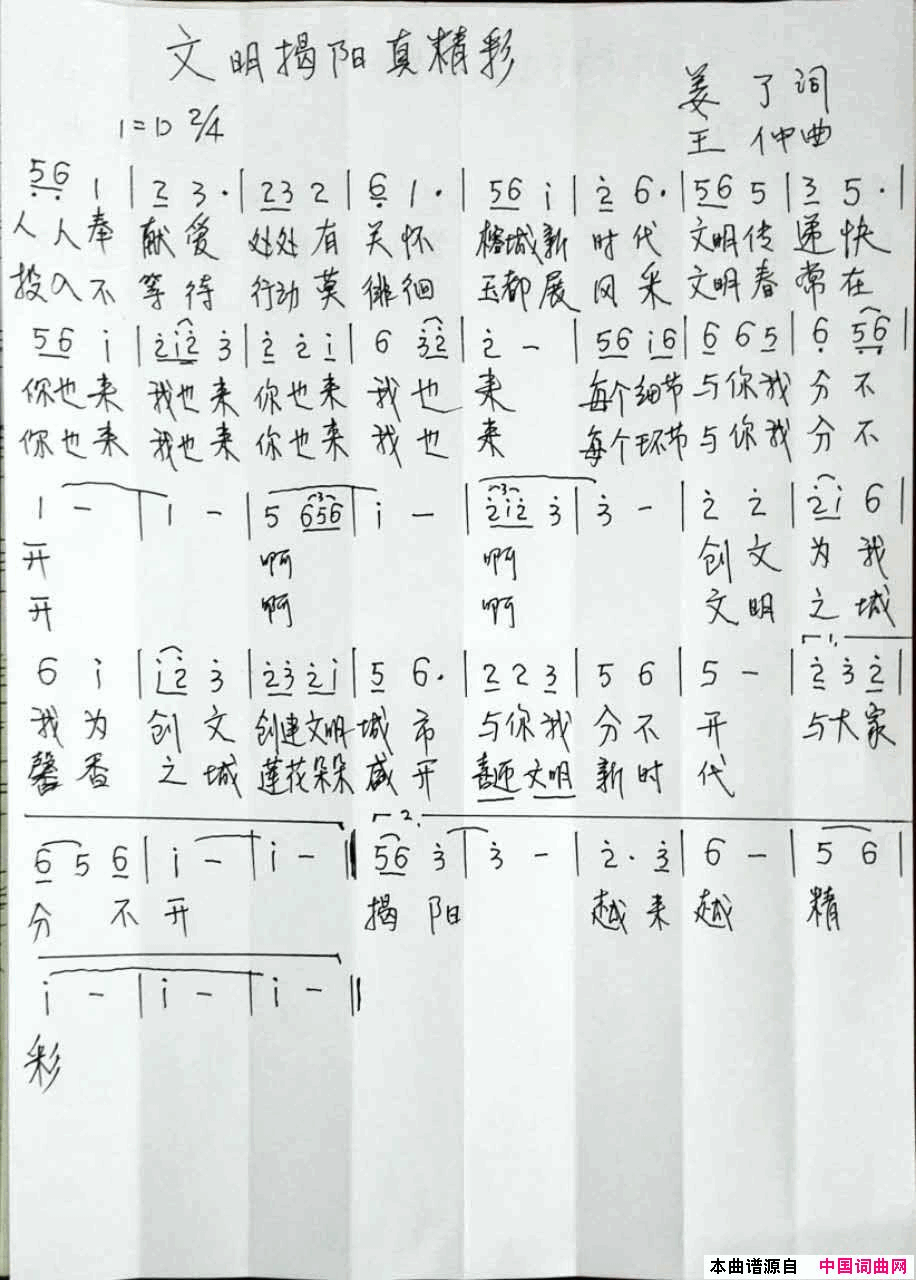 文明揭阳真精彩
姜 了 词
1=D 2/4
王 仲 曲
5 6 1 | 2 3 · | 2 3 2 | 6 1 · | 5 6 i | 2 6 · | 5 6 5 | 3 5 · |
人人奉 献爱 处处有 关怀 榕城新 时代 文明传 递快
投入不 等待 行动莫 徘徊 玉都展 风采 文明春 常在
5 6 i | 2 i 2 3 | 2 2 i | 6 3 2 | 2 - | 5 6 i 6 | 6 6 5 | 6 5 6 |
你也来 我也来 你也来 我也 来 每个细节 与你我 分不
你也来 我也来 你也来 我也 来 每个环节 与你我 分不
1 - | 1 - | 5 6 5 6 | i - | 2 i 2 3 | 3 - | 2 2 | 2 i 6 |
开 啊 啊 创文 为我
开 啊 啊 文明 之城
6 i | i 2 3 | 2 3 2 i | 5 6 · | 2 2 3 | 5 6 | 5 - | 2 3 2 |
我为 创文 创建文明 城市 与你我 分不 开 与大家
馨香 之城 莲花朵朵 盛开 喜迎文明 新时 代
6 5 6 | i - | i - | 5 6 3 | 3 - | 2 · 3 | 6 - | 5 6 |
分不开 揭阳 越来越 精
i - | i - | i - ||
彩
本曲谱源自 中国词曲网